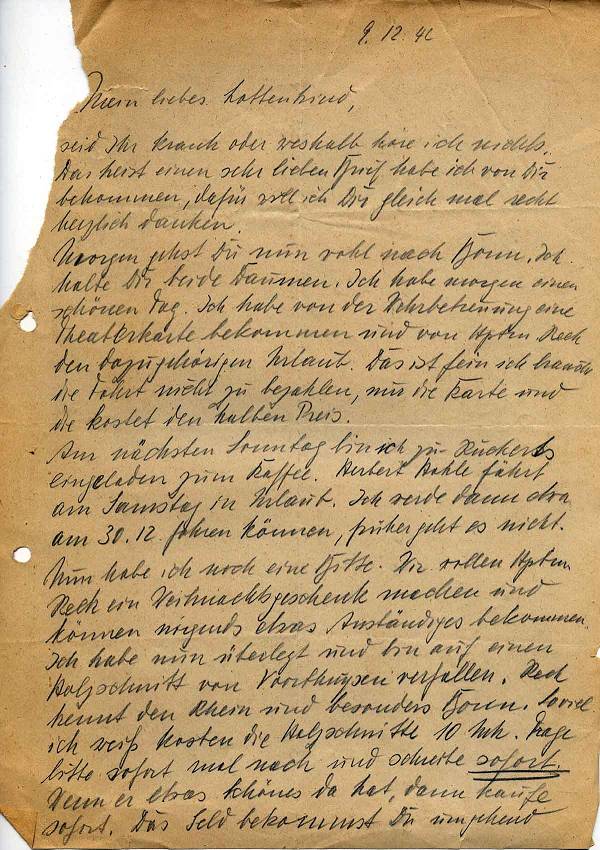 9.12.42
Mein liebes Lottenkind,
seid Ihr krank oder weshalb höre ich nichts.
Das heist einen sehr lieben Brief habe ich von Dir
bekommen, dafür will ich Dir gleich mal recht
herzlich danken.
Morgen gehst Du nun wohl nach Bonn. Ich
halte Dir beide Daumen. Ich habe morgen einen
schönen Tag. Ich habe von der Wehrbetreuung eine
Theaterkarte bekommen und von Hptm Reck
den dazugehörigen Urlaub. Das ist fein ich brauche
die Fahrt nicht zu bezahlen, nur die Karte und
die kostet den halben Preis.
Am nächsten Sonntag bin ich zu Rückerts
eingeladen zum Kaffee. Herbert Hohle fährt
am Samstag in Urlaub. Ich werde dann etwa
am 30.12. fahren können, früher geht es nicht.
Nun habe ich noch eine Bitte. Wir wollen Hptm
Reck ein Weihnachtsgeschenk machen und
können nirgends etwas Anständiges bekommen.
Ich habe nun überlegt und bin auf einen
Holzschnitt von verfallen. Reck
kennt den Rhein und besonders Bonn. Soviel
ich weiß kosten die Holzschnitte 10 Mk. Frage
bitte sofort mal nach und schreibe sofort.
Wenn er etwas schönes da hat, dann kaufe
sofort. Das Geld bekommst Du umgehend